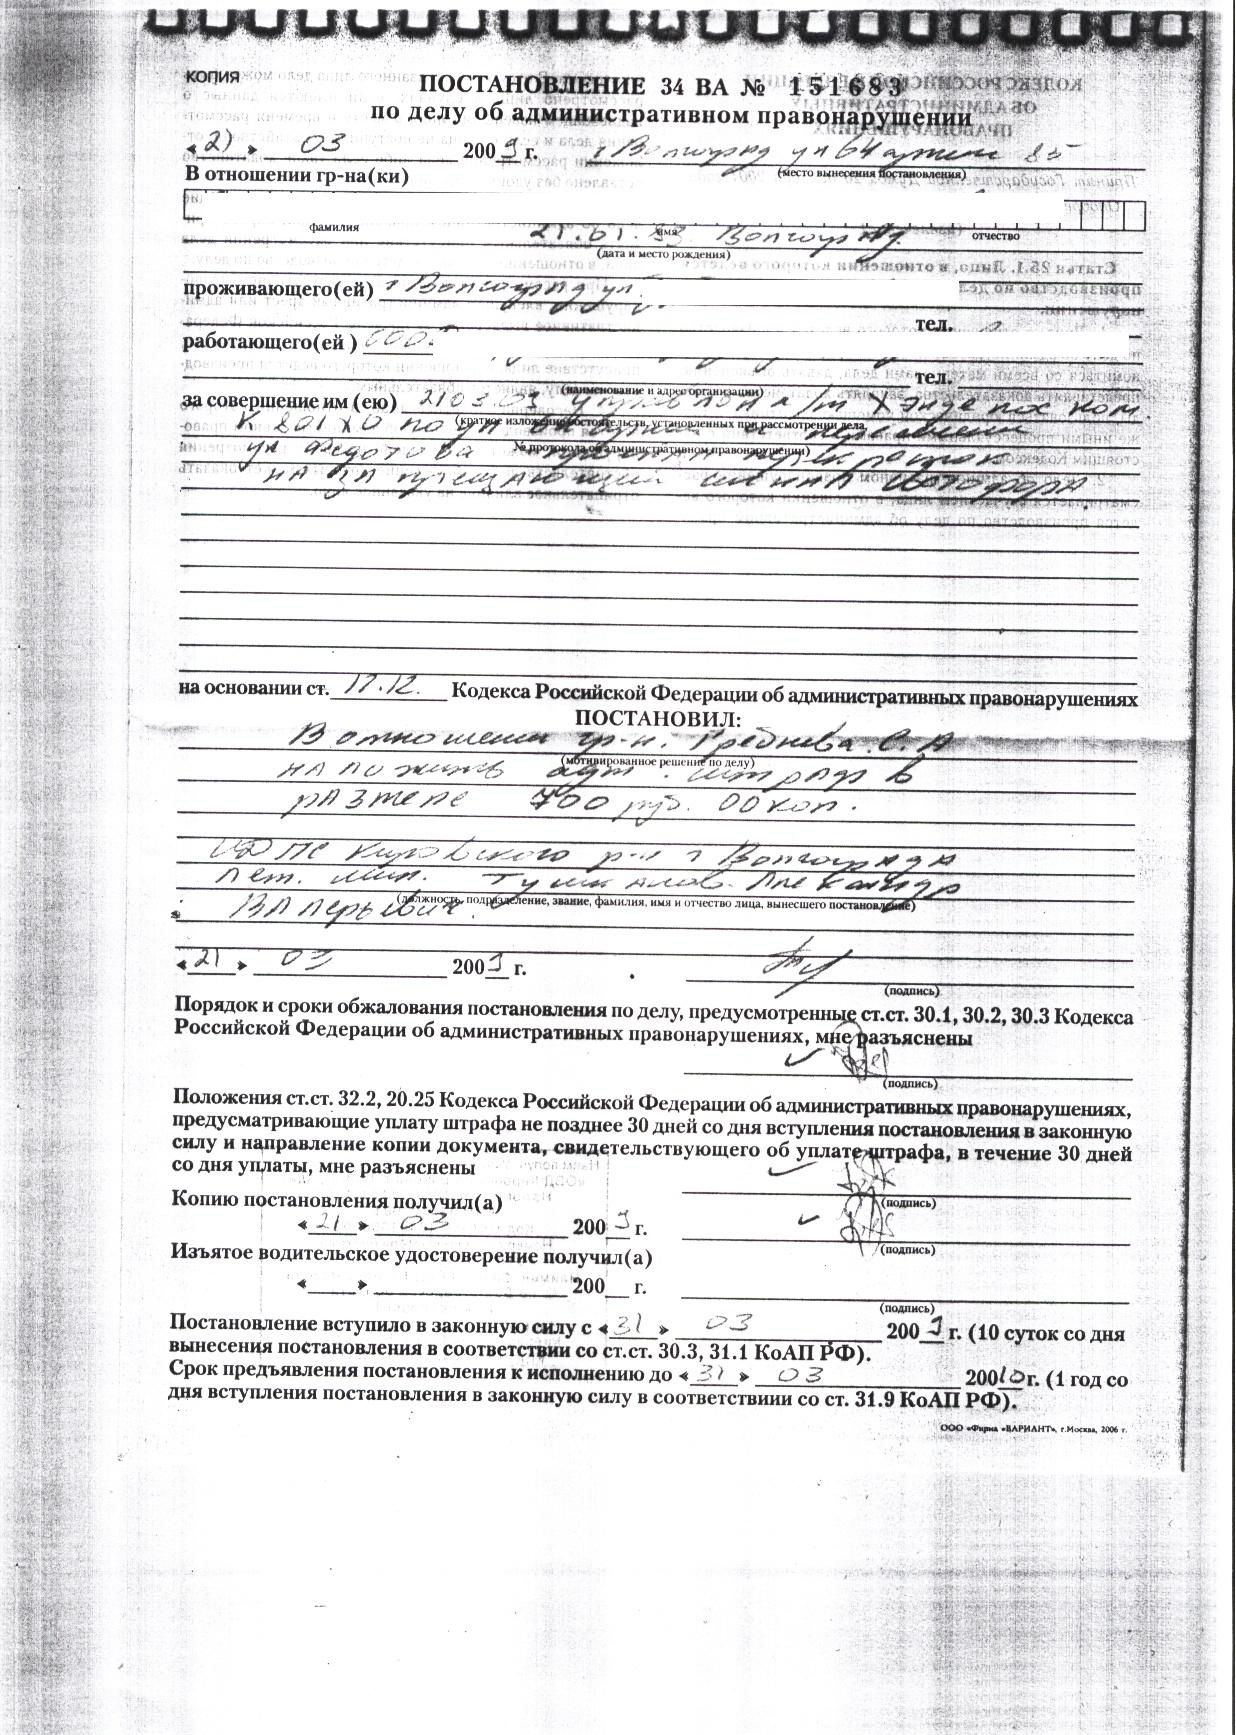 КОПИЯ
ПОСТАНОВЛЕНИЕ 34 ВА № 151683
по делу об административном правонарушении
«21» 03 2009 г. г Волгоград ул 64 Армии 85
(место вынесения постановления)
В отношении гр-на(ки)
фамилия имя отчество
21.01.83 Волгоград.
(дата и место рождения)
проживающего(ей) г Волгоград ул.
тел.
работающего(ей ) ООО
тел.
(наименование и адрес организации)
за совершение им (ею) 21 03 09 управлял а/м Хэнде гос ном.
(краткое изложение обстоятельств, установленных при рассмотрении дела,
К 801 ХО по ул
№ протокола об административном правонарушении)
ул Федотова проехал перекресток
на запрещающий сигнал светофора.
на основании ст. 12.12. Кодекса Российской Федерации об административных правонарушениях
ПОСТАНОВИЛ:
В отношении гр-н. Гребнева С. А
(мотивированное решение по делу)
наложить адм. штраф в
размере 700 руб. 00 коп.
ИДПС Кировского р-н г Волгограда
лет. мил. Александр
(должность, подразделение, звание, фамилия, имя и отчество лица, вынесшего постановление)
Валерьевич.
«21» 03 2009 г.
(подпись)
Порядок и сроки обжалования постановления по делу, предусмотренные ст.ст. 30.1, 30.2, 30.3 Кодекса
Российской Федерации об административных правонарушениях, мне разъяснены
(подпись)
Положения ст.ст. 32.2, 20.25 Кодекса Российской Федерации об административных правонарушениях,
предусматривающие уплату штрафа не позднее 30 дней со дня вступления постановления в законную
силу и направление копии документа, свидетельствующего об уплате штрафа, в течение 30 дней
со дня уплаты, мне разъяснены
(подпись)
Копию постановления получил(а)
«21» 03 2009 г.
(подпись)
Изъятое водительское удостоверение получил(а)
«____» 200__ г.
(подпись)
Постановление вступило в законную силу с «31» 03 2009 г. (10 суток со дня
вынесения постановления в соответствии со ст.ст. 30.3, 31.1 КоАП РФ).
Срок предъявления постановления к исполнению до «31» 03 20010 г. (1 год со
дня вступления постановления в законную силу в соответствиии со ст. 31.9 КоАП РФ).
ООО «Фирма «ВАРИАНТ», г.Москва, 2006 г.